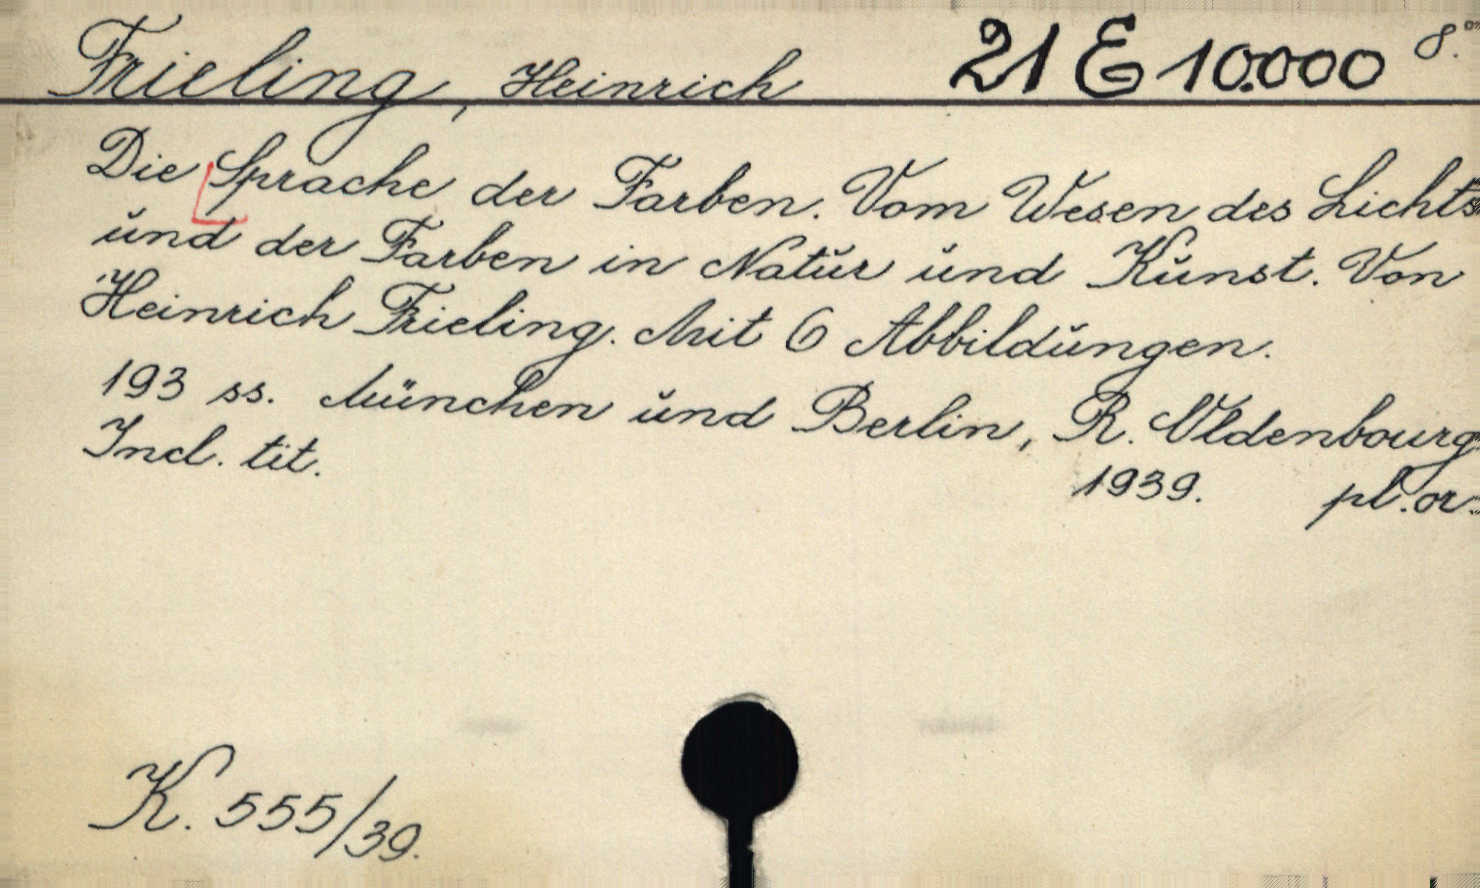 Frieling, Heinrich 21 E 10.000 8.°
Die Sprache der Farben. Vom Wesen des Lichts
und der Farben in Natur und Kunst. Von
Heinrich Frieling. Mit 6 Abbildungen.
193 ss. München und Berlin, R. Oldenbourg
Incl. tit. 1939. pl. or.
K. 555/39.